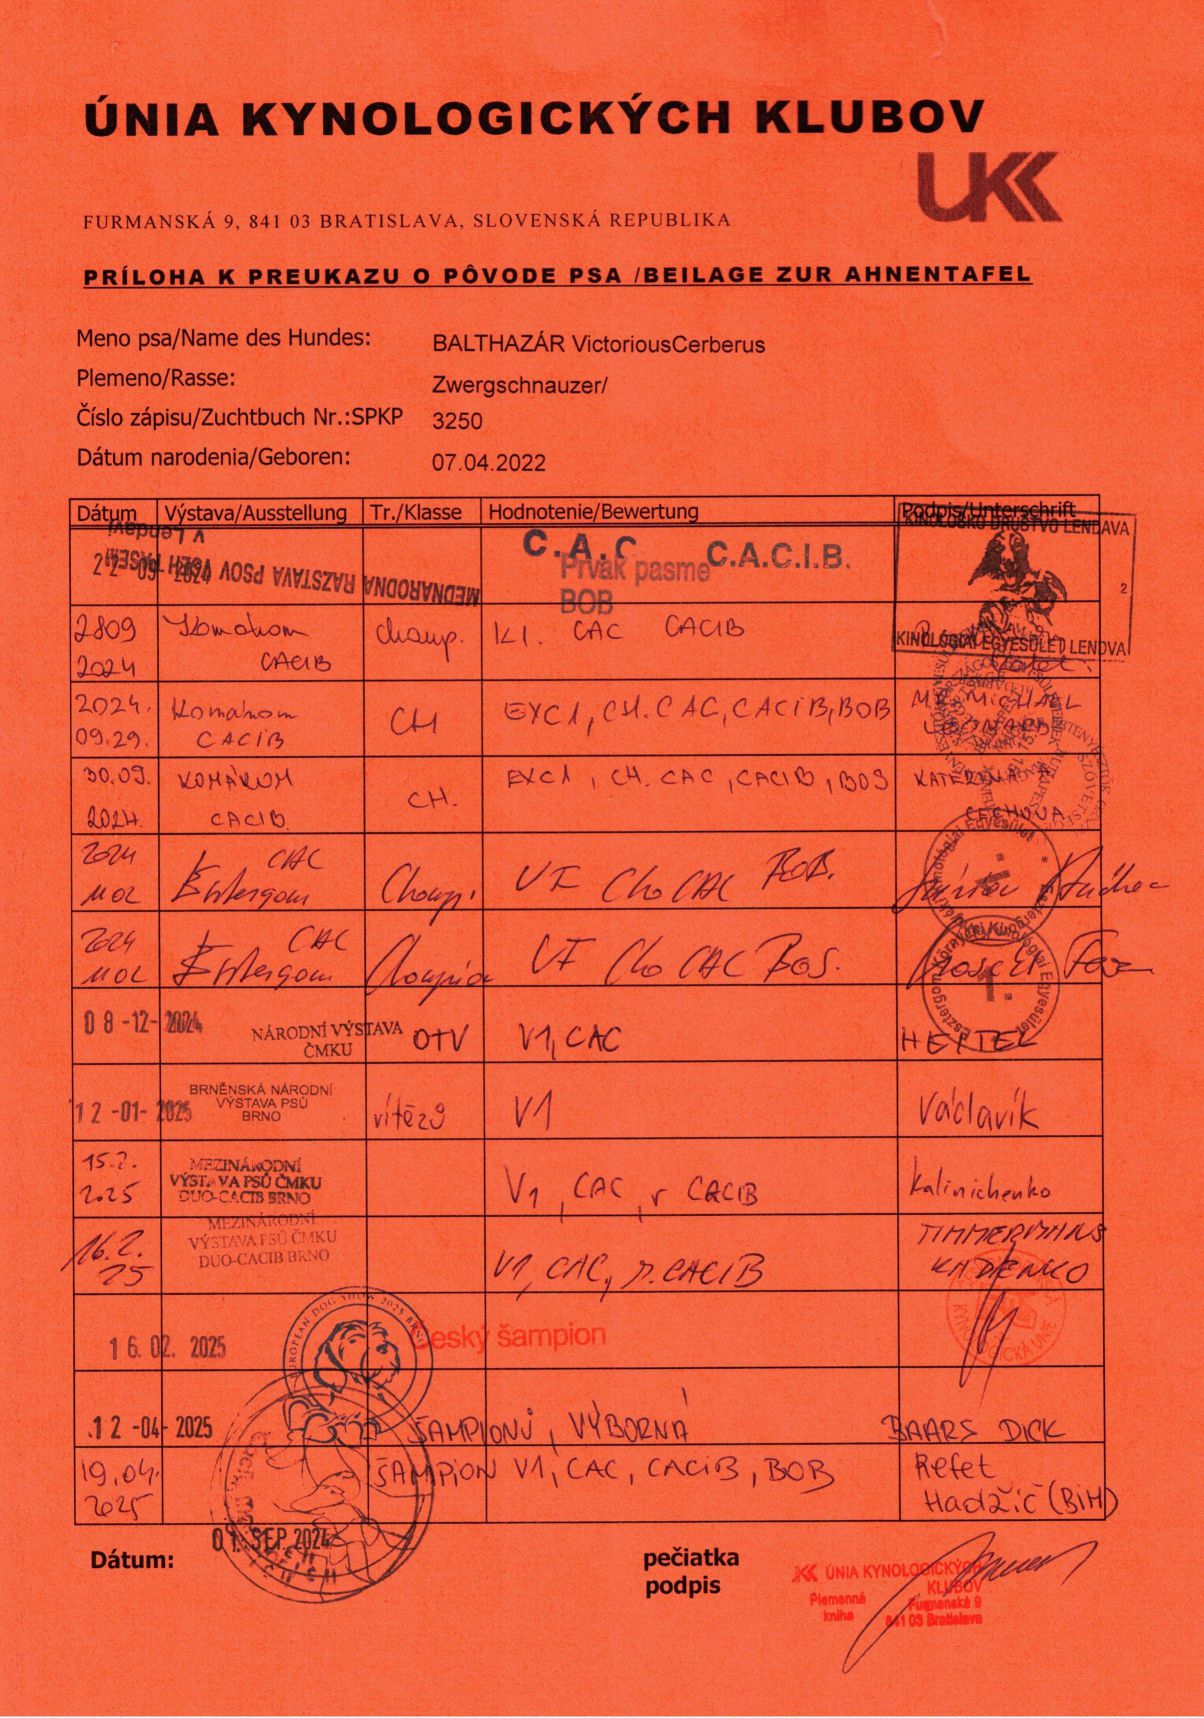 ÚNIA KYNOLOGICKÝCH KLUBOV
UKK
FURMANSKÁ 9, 841 03 BRATISLAVA, SLOVENSKÁ REPUBLIKA
PRÍLOHA K PREUKAZU O PÔVODE PSA /BEILAGE ZUR AHNENTAFEL
Meno psa/Name des Hundes: BALTHAZÁR VictoriousCerberus
Plemeno/Rasse: Zwergschnauzer/
Číslo zápisu/Zuchtbuch Nr.:SPKP 3250
Dátum narodenia/Geboren: 07.04.2022
Dátum Výstava/Ausstellung Tr./Klasse Hodnotenie/Bewertung Podpis/Unterschrift
V Lendavi
MEDNARODNA RAZSTAVA PSOV VSEH PASEM
22-09-2024
C.A.C C.A.C.I.B.
Prvak pasme
BOB
KINOLOŠKO DRUŠTVO LENDAVA
2
KINOLÓGIAI EGYESÜLET LENDVA
2809 Komárom champ. K1. CAC CACIB
2024 CACIB
2024. Komárom CH EXC1, CH. CAC, CACIB, BOB MR. MICHAEL
09.29. CACIB LEONARD
30.09. KOMÁROM CH. EXC1, CH. CAC, CACIB, BOS KATERINA
2024. CACIB. CECHOVA
2024 CAC
Esztergom Champ. V1 Ch. CAC BOB.
2024 CAC
Esztergom Champion V1 Ch CAC BOS.
Esztergom Környéki Kinológiai Egyesület
1.
08-12-2024 NÁRODNÍ VÝSTAVA ČMKU OTV V1, CAC HEPTEL
12-01-2025 BRNĚNSKÁ NÁRODNÍ
VÝSTAVA PSŮ
BRNO
vítězů V1 Václavík
15.2. 2025 MEZINÁRODNÍ
VÝSTAVA PSŮ ČMKU
DUO-CACIB BRNO
V1, CAC, r CACIB Kalinichenko
16.2. 25 MEZINÁRODNÍ
VÝSTAVA PSŮ ČMKU
DUO-CACIB BRNO
V1, CAC, r. CACIB TIMMERMANS
KADENKO
KYNOLOGICKÁ UNIE
16. 02. 2025 Český šampion
EUROPEAN DOG SHOW 2025 BRNO
12-04-2025 ŠAMPIONŮ, VÝBORNÁ BAARS DICK
19.04. 2025 ŠAMPION V1, CAC, CACIB, BOB Refet
Hadžić (BIH)
Dátum: 01. SEP. 2024
pečiatka
podpis
ÚNIA KYNOLOGICKÝCH
KLUBOV
Plemenná kniha
Furmanská 9
841 03 Bratislava